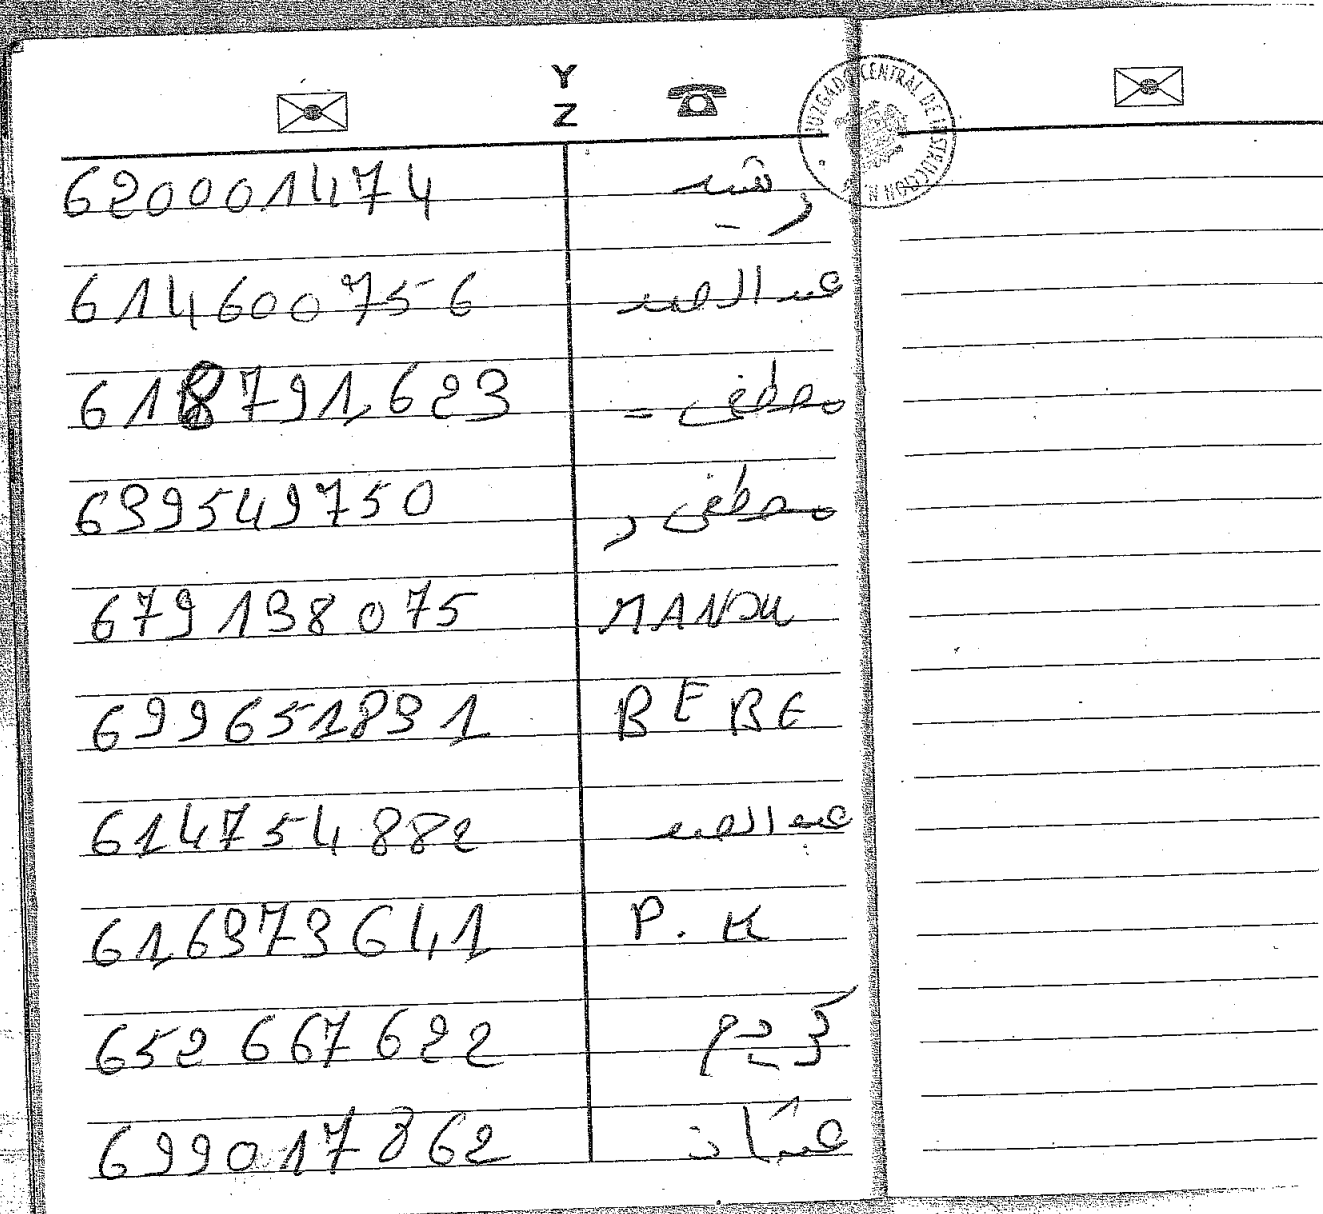 Y
Z
JUZGADO CENTRAL DE INSTRUCCION N.
620001474 رشيد
614600756 عبد الصمد
618791623 مصطفى =
699549750 مصطفى ر
679198075 MANOU
699651891 BEBE
614754882 عبد الصمد
616979641 P. K
652667622 كريم
699017862 عثمان